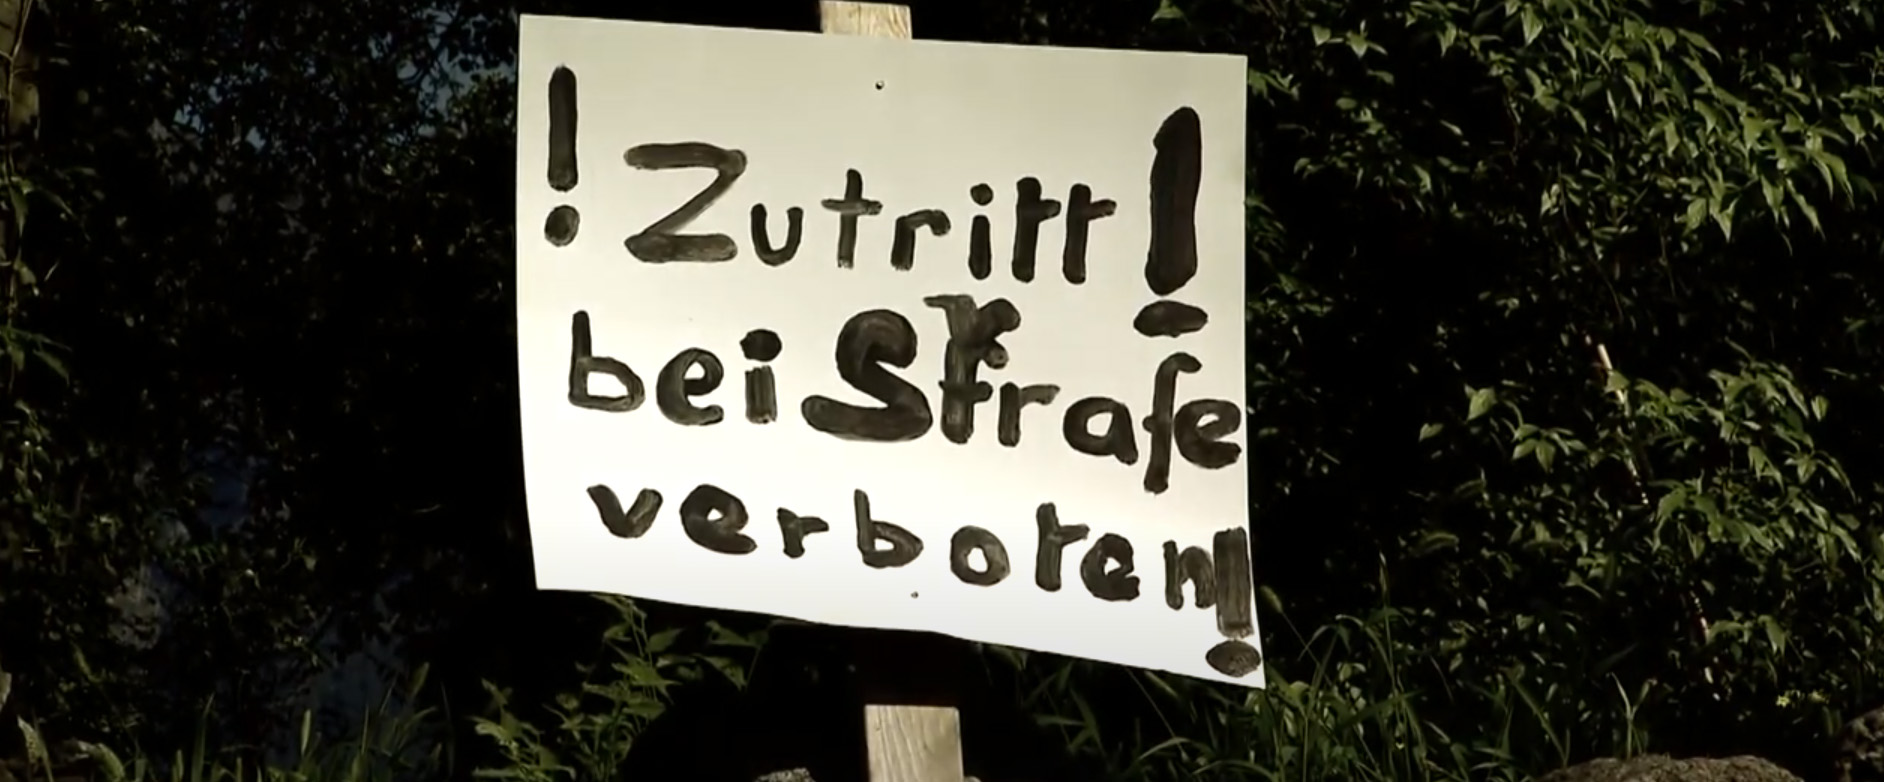 ! Zutritt !
bei Strafe
verboten!